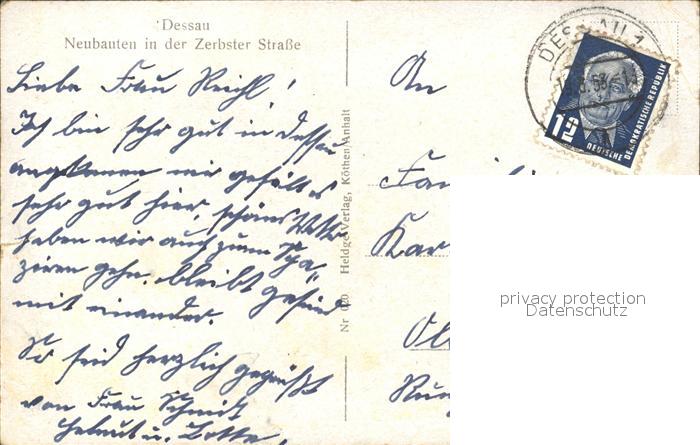 Dessau
Neubauten in der Zerbster Straße
Liebe Frau Reichl!
Ich bin sehr gut in Dessau
angekommen mir gefällt es
sehr gut hier, schönes Wetter
haben wir auch zum Spa=
ziren gehn. bleibt gesund
mit einander.
So seid herzlich gegrüßt
von Frau Schmidt
Helmut u. Lotte.
Nr 020 Heldge-Verlag, Köthen/Anhalt
DESSAU 1
12
DEUTSCHE
DEMOKRATISCHE REPUBLIK
An
Fam
Kar
privacy protection
Datenschutz